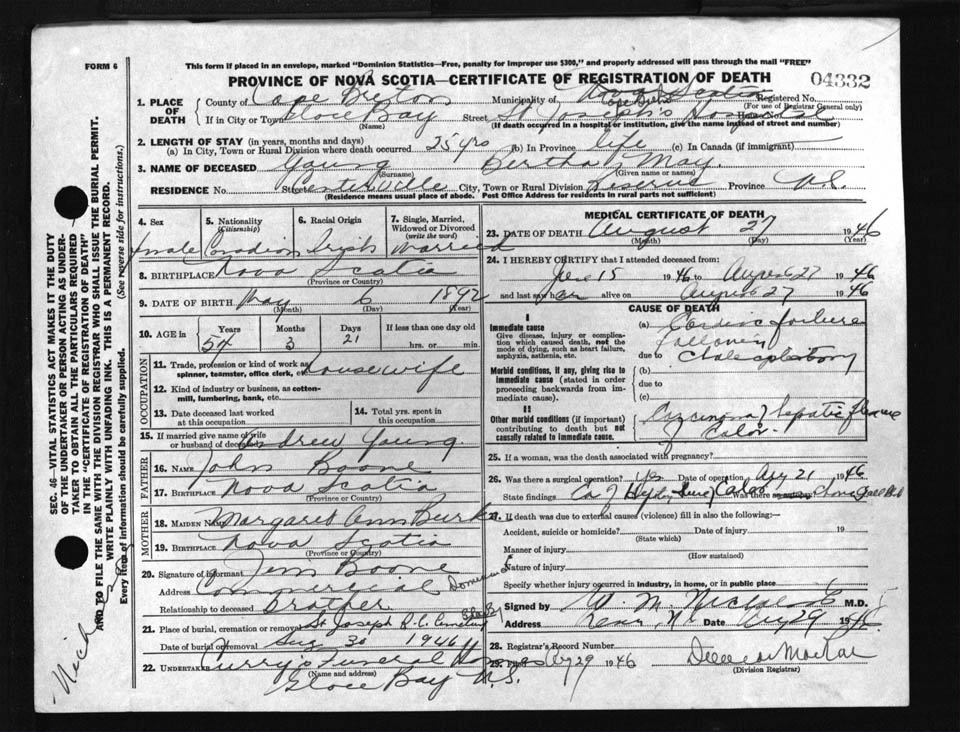 FORM 6
This form if placed in an envelope, marked "Dominion Statistics—Free, penalty for improper use $300," and properly addressed will pass through the mail "FREE"
PROVINCE OF NOVA SCOTIA—CERTIFICATE OF REGISTRATION OF DEATH
04332
1. PLACE OF DEATH
County of Cape Breton Municipality of Cape Breton Nova Scotia Registered No.
(For use of Registrar General only)
If in City or Town Glace Bay Street St Joseph's Hospital
(Name) (If death occurred in a hospital or institution, give the name instead of street and number)
2. LENGTH OF STAY (in years, months and days)
(a) In City, Town or Rural Division where death occurred 35 yrs (b) In Province life (c) In Canada (if immigrant)
3. NAME OF DECEASED Young Bertha May
(Surname) (Given name or names)
RESIDENCE No. Street Centerville City, Town or Rural Division Reserve Province N.S.
(Residence means usual place of abode. Post Office Address for residents in rural parts not sufficient)
4. Sex 5. Nationality (Citizenship) 6. Racial Origin 7. Single, Married, Widowed or Divorced (write the word)
Female Canadian Irish Married
8. BIRTHPLACE Nova Scotia
(Province or Country)
9. DATE OF BIRTH May 6 1892
(Month) (Day) (Year)
10. AGE in Years Months Days If less than one day old
54 3 21 hrs. or min.
OCCUPATION
11. Trade, profession or kind of work as spinner, teamster, office clerk, etc. housewife
12. Kind of industry or business, as cotton-mill, lumbering, bank, etc.
13. Date deceased last worked at this occupation
14. Total yrs. spent in this occupation
15. If married give name of wife or husband of deceased Andrew Young
FATHER
16. NAME John Boone
17. BIRTHPLACE Nova Scotia
(Province or Country)
MOTHER
18. MAIDEN NAME Margaret Ann Burke
19. BIRTHPLACE Nova Scotia
(Province or Country)
20. Signature of informant Jim Boone
Address Commercial Dominion
Relationship to deceased brother
21. Place of burial, cremation or removal St Joseph R.C. Cemetery
Date of burial or removal Aug 30 1946
22. UNDERTAKER Curry's Funeral Home
(Name and address)
Glace Bay N.S.
MEDICAL CERTIFICATE OF DEATH
23. DATE OF DEATH August 27 1946
(Month) (Day) (Year)
24. I HEREBY CERTIFY that I attended deceased from:
June 15 1946 to August 27 1946
and last saw her alive on August 27 1946
CAUSE OF DEATH
I
Immediate cause
Give disease, injury or complication which caused death, not the mode of dying, such as heart failure, asphyxia, asthenia, etc.
(a) Cardiac failure
following
due to
Morbid conditions, if any, giving rise to immediate cause (stated in order proceeding backwards from immediate cause).
(b)
due to
(c)
II
Other morbid conditions (if important) contributing to death but not causally related to immediate cause.
Carcinoma of hepatic flexure
of Colon
25. If a woman, was the death associated with pregnancy?
26. Was there a surgical operation? yes Date of operation Aug 21 1946
State findings Ca of
27. If death was due to external causes (violence) fill in also the following:—
Accident, suicide or homicide? Date of injury 19
(State which)
Manner of injury
(How sustained)
Nature of injury
Specify whether injury occurred in industry, in home, or in public place
Signed by M.D.
Address Date Aug 29 1946
28. Registrar's Record Number
29. Filed Aug 29 1946
(Division Registrar)
SEC. 46—VITAL STATISTICS ACT MAKES IT THE DUTY
OF THE UNDERTAKER OR PERSON ACTING AS UNDER-
TAKER TO OBTAIN ALL THE PARTICULARS REQUIRED
IN THE "CERTIFICATE OF REGISTRATION OF DEATH"
AND TO FILE THE SAME WITH THE DIVISION REGISTRAR WHO SHALL ISSUE THE BURIAL PERMIT.
WRITE PLAINLY WITH UNFADING INK. THIS IS A PERMANENT RECORD.
Every item of information should be carefully supplied. (See reverse side for instructions.)